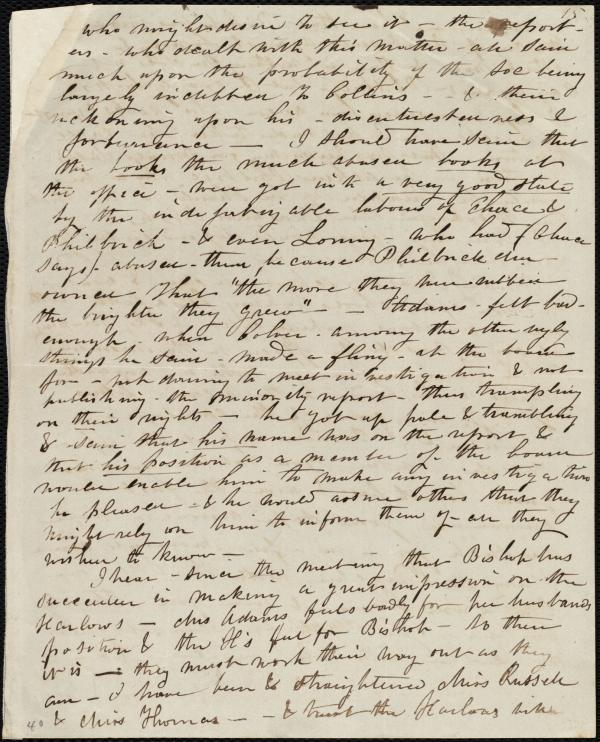 15
who might desire to see it - the report-
ers - who dealt with this matter - all said
much upon the probability of the soc being
largely indebted to Collins - & their
reckoning upon his - disinterestedness &
forbearance — I should have said that
the books the much abused books at
the office - were got into a very good state
by the indefatigable labours of Chace &
Philbrick - & even Loring - who had (Chace
says) abused them, because Philbrick
owned that "the more they were rubbed
the brighter they grew" - Adams - felt bad-
enough - when Colver - among the other ugly
things he said - made a fling - at the board
for - not daring to meet investigation & not
publishing - the minority report - thus trampling
on their rights - he got up pale & trembling
& said that his name was on the report &
that his position as a member of the board
would enable him to make any investigation
he pleased - & he would assure others that they
might rely on him to inform them of all they
wished to know —
I hear - since the meeting that Bishop has
succeeded in making a great impression on the
Harlows - Mrs Adams feels badly for her husbands
position & the H's feel for Bishop - so there
it is — they must work their way out as they
can - I have been & straightened Miss Russell
& Miss Thomas — & trust the Harlows
40